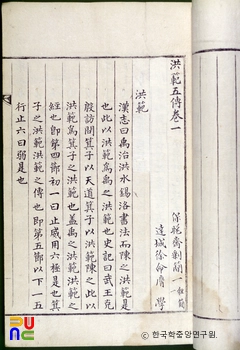 洪範五傳卷一
保晩齋剩簡 一
達城徐命膺 學
洪範
漢志曰禹治洪水錫洛書法而陳之洪範是
也此以洪範爲禹之洪範也史記曰武王克
殷訪問箕子以天道箕子以洪範陳之此以
洪範爲箕子之洪範也盖禹之洪範洪範之
經也卽第四節初一曰止威用六極是也箕
子之洪範洪範之傳也卽第五節以下一五
行止六曰弱是也
한국학중앙연구원.